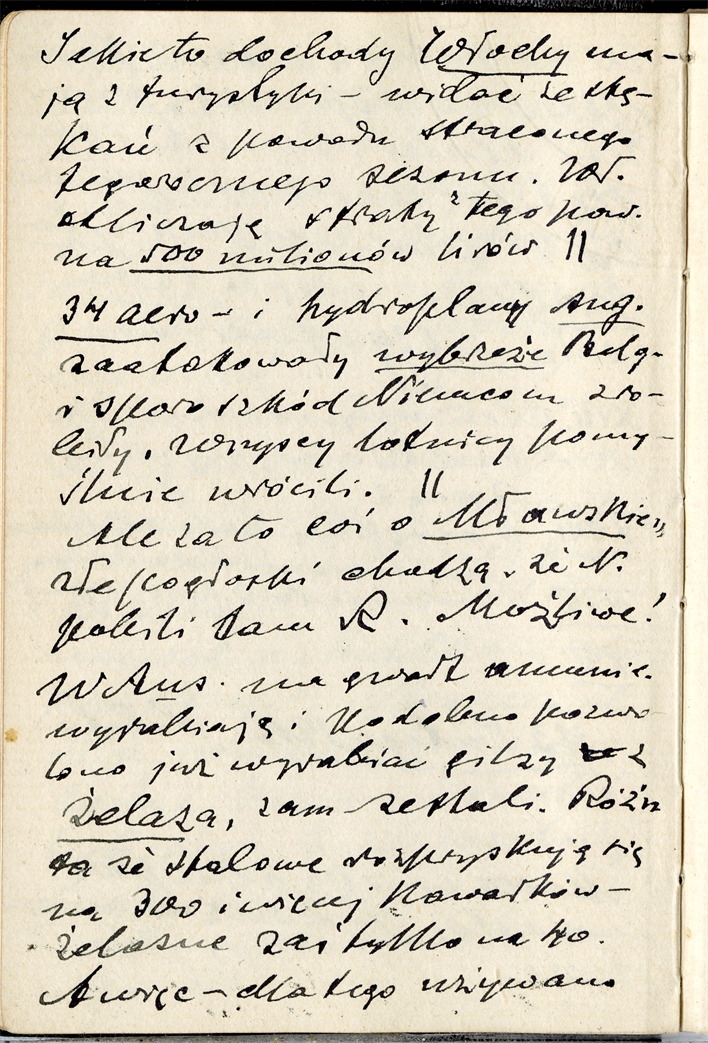 Jakie to dochody Włochy ma-
ją z turystyki – widać ze stę-
kań z powodu straconego
tegorocznego sezonu. Wł.
obliczają straty z tego pow.
na 500 milionów lirów ||
34 aero – i hydroplany Ang.
zaatakowały wybrzeże Belg.
i sporo szkód Niemcom zro-
biły. Wszyscy lotnicy pomy-
ślnie wrócili. ||
Ale za to coś o Mławskiem
złe pogłoski chodzą, że N.
pobili tam R. Możliwe!
W Aus. na gwałt amunic.
wyrabiają i podobno pozwo-
lono już wyrabiać gilzy z
żelaza, zam. ze stali. Różn
ta że stalowe rozpryskują się
na 300 i więcej kawałków –
żelazne zaś tylko na 40.
A więc – dlatego używano